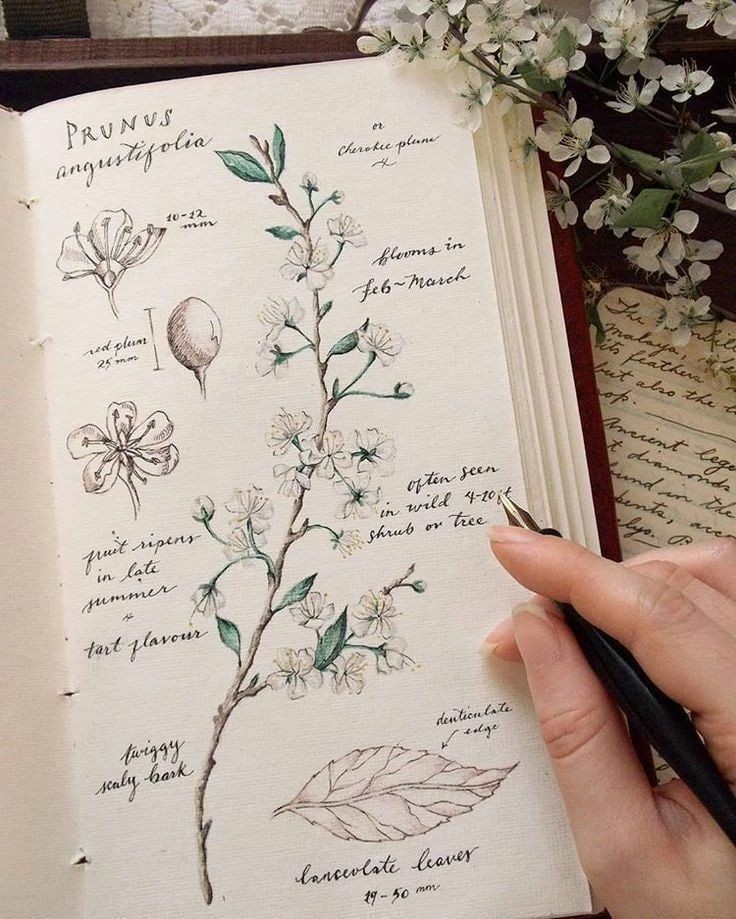 PRUNUS
angustifolia
or
Cherokee plum
10-12
mm
blooms in
Feb~March
red plum
25 mm
often seen
in wild 4-20ft
shrub or tree
fruit ripens
in late
summer
+
tart flavour
twiggy
scaly bark
denticulate
edge
lanceolate leaves
19-50 mm
The
malaya,
its feathers
but also the
Ancient lege
diamonds
und in the